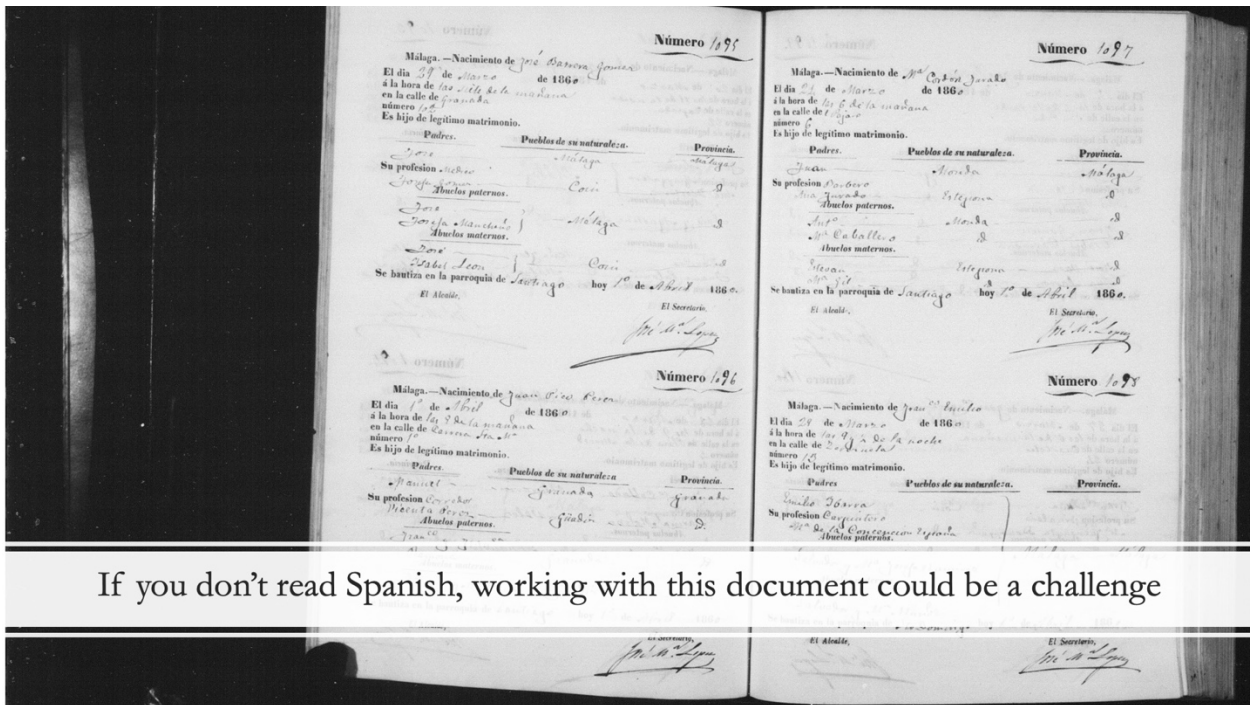 Número 1095
Málaga.—Nacimiento de José Barrera Gomez
El dia 29 de Marzo de 1860
á la hora de las siete de la mañana
en la calle de Granada
número
Es hijo de legítimo matrimonio.
Padres. Pueblos de su naturaleza. Provincia.
José Málaga Málaga
Su profesion Medico
Josefa Gomez Coin
Abuelos paternos.
José
Josefa Málaga
Abuelos maternos.
José
Isabel Leon Coin
Se bautiza en la parroquia de Santiago hoy 1º de Abril 1860.
El Alcalde, El Secretario,
José Mª Lopez
Número 1096
Málaga.—Nacimiento de Juan Pico Perez
El dia 1º de Abril de 1860
á la hora de las 8 de la mañana
en la calle de Carrera
número
Es hijo de legítimo matrimonio.
Padres. Pueblos de su naturaleza Provincia.
Manuel Granada Granada
Su profesion Corredor
Vicenta Perez
Abuelos paternos.
El Secretario,
José Mª Lopez
Número 1097
Málaga.—Nacimiento de Mª Cordón Jurado
El dia de Marzo de 1860
á la hora de las 6 de la mañana
en la calle de
número 6
Es hijo de legítimo matrimonio.
Padres. Pueblos de su naturaleza. Provincia.
Juan Monda Málaga
Su profesion Barbero
Ana Jurado Estepona
Abuelos paternos.
Antº Monda
Mª Caballero
Abuelos maternos.
Estepona
Mª Gil
Se bautiza en la parroquia de Santiago hoy 1º de Abril 1860.
El Alcalde, El Secretario,
José Mª Lopez
Número 1098
Málaga.—Nacimiento de Emilio
El dia 29 de Marzo de 1860
á la hora de las de la noche
en la calle de
número
Es hijo de legítimo matrimonio.
Padres Pueblos de su naturaleza. Provincia.
Emilio Ibarra
Su profesion Carpintero
Mª de la Concepcion
Abuelos paternos.
If you don’t read Spanish, working with this document could be a challenge
El Alcalde, El Secretario,
José Mª Lopez